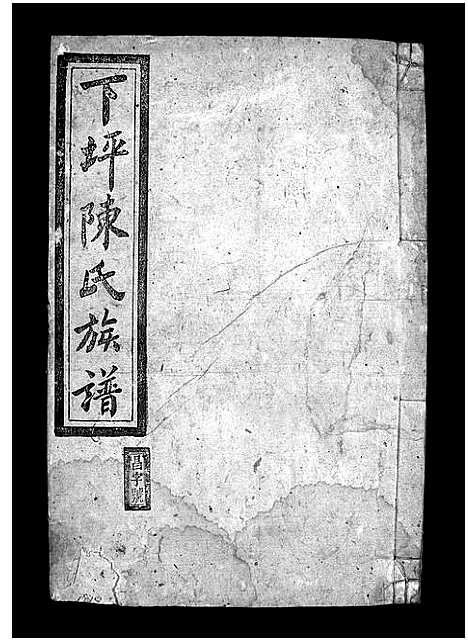 下坪陳氏族譜
昌字號